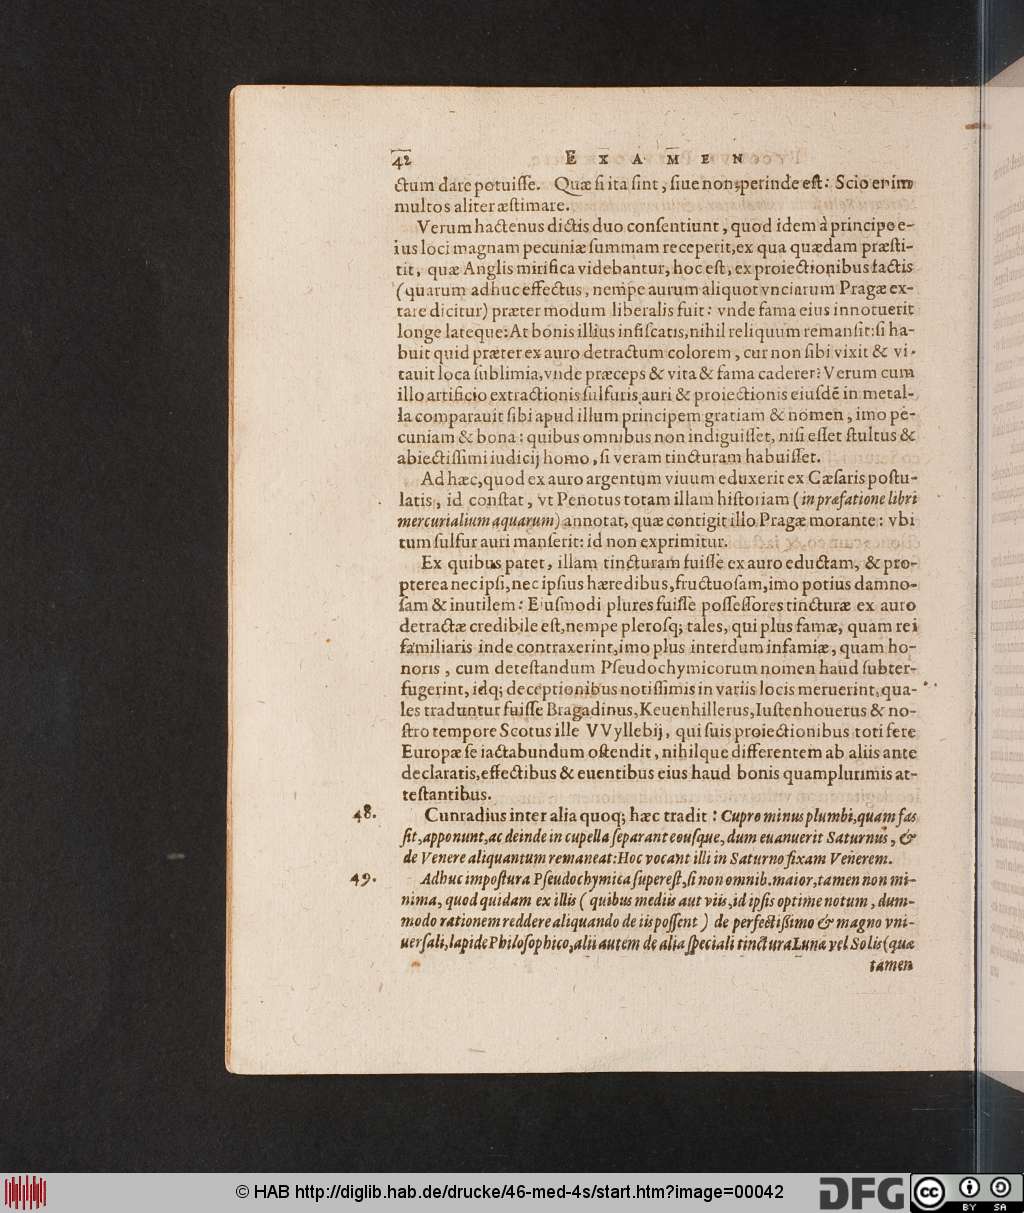 42 EXAMEN
ctum dare potuisse. Quæ si ita sint, siue non, perinde est: Scio enim
multos aliter æstimare.
Verum hactenus dictis duo consentiunt, quod idem à principe e-
ius loci magnam pecuniæ summam receperit, ex qua quædam præsti-
tit, quæ Anglis mirifica videbantur, hoc est, ex proiectionibus factis
(quarum adhuc effectus, nempe aurum aliquot vnciarum Pragæ ex-
tare dicitur) præter modum liberalis fuit: vnde fama eius innotuerit
longe lateque: At bonis illius infiscatis, nihil reliquum remansit: si ha-
buit quid præter ex auro detractum colorem, cur non sibi vixit & vi-
tauit loca sublimia, vnde præceps & vita & fama caderet? Verum cum
illo artificio extractionis sulfuris auri & proiectionis eiusdē in metal-
la comparauit sibi apud illum principem gratiam & nomen, imo pe-
cuniam & bona: quibus omnibus non indiguisset, nisi esset stultus &
abiectissimi iudicij homo, si veram tincturam habuisset.
Ad hæc, quod ex auro argentum viuum eduxerit ex Cæsaris postu-
latis, id constat, vt Penotus totam illam historiam (in præfatione libri
mercurialium aquarum) annotat, quæ contigit illo Pragæ morante: vbi
tum sulfur auri manserit: id non exprimitur.
Ex quibus patet, illam tincturam fuisse ex auro eductam, & pro-
pterea nec ipsi, nec ipsius hæredibus, fructuosam, imo potius damno-
sam & inutilem: Eiusmodi plures fuisse possessores tincturæ ex auro
detractæ credibile est, nempe plerosq; tales, qui plus famæ, quam rei
familiaris inde contraxerint, imo plus interdum infamiæ, quam ho-
noris, cum detestandum Pseudochymicorum nomen haud subter-
fugerint, idq; deceptionibus notissimis in variis locis meruerint, qua-
les traduntur fuisse Bragadinus, Keuenhillerus, Iustenhouerus & no-
stro tempore Scotus ille VVyllebij, qui suis proiectionibus toti fere
Europæ se iactabundum ostendit, nihilque differentem ab aliis ante
declaratis, effectibus & euentibus eius haud bonis quamplurimis at-
testantibus.
48. Cunradius inter alia quoq; hæc tradit: Cupro minus plumbi, quam fas
sit, apponunt, ac deinde in cupella separant eousque, dum euanuerit Saturnus, &
de Venere aliquantum remaneat: Hoc vocant illi in Saturno fixam Venerem.
49. Adhuc impostura Pseudochymica superest, si non omnib. maior, tamen non mi-
nima, quod quidam ex illis (quibus mediis aut viis, id ipsis optime notum, dum-
modo rationem reddere aliquando de iis possent) de perfectissimo & magno vni-
uersali, lapide Philosophico, alii autem de alia speciali tinctura Lunæ vel Solis (quæ
tamen
© HAB http://diglib.hab.de/drucke/46-med-4s/start.htm?image=00042
DFG
cc BY SA